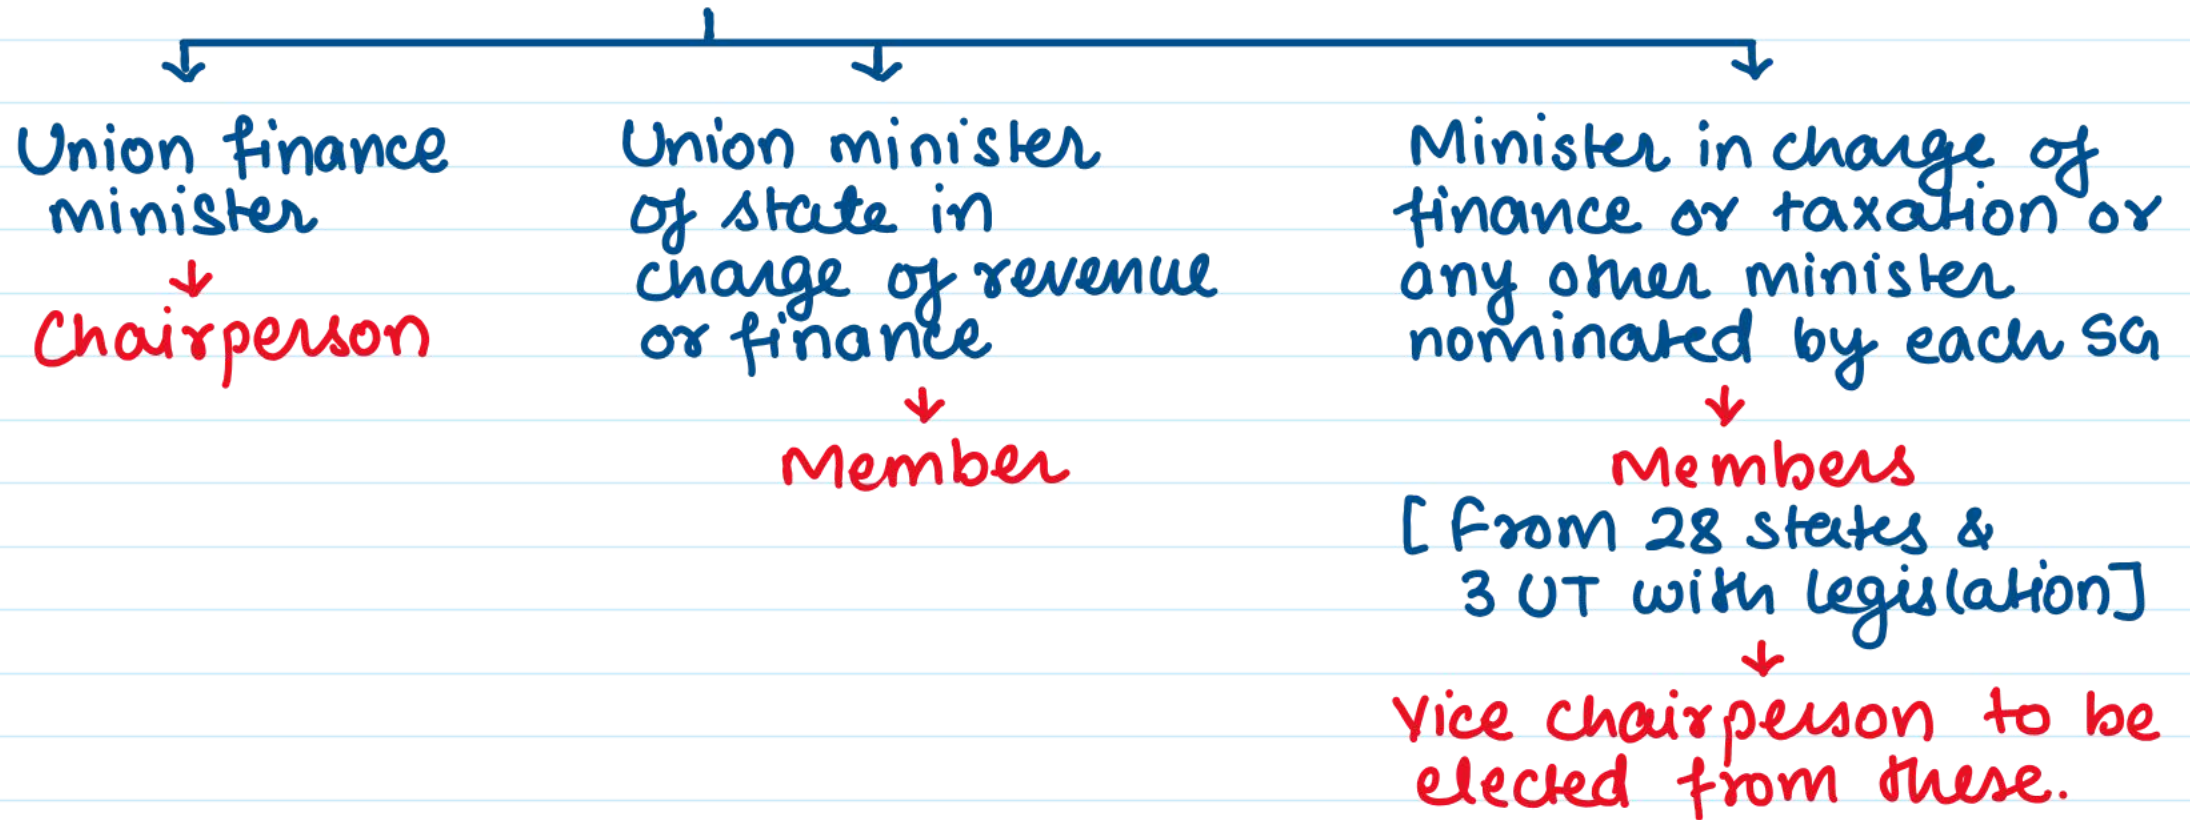 Union finance
minister
Chairperson
Union minister
of state in
charge of revenue
or finance
Member
Minister in charge of
finance or taxation or
any other minister
nominated by each SG
Members
[From 28 states &
3 UT with legislation]
Vice chairperson to be
elected from these.